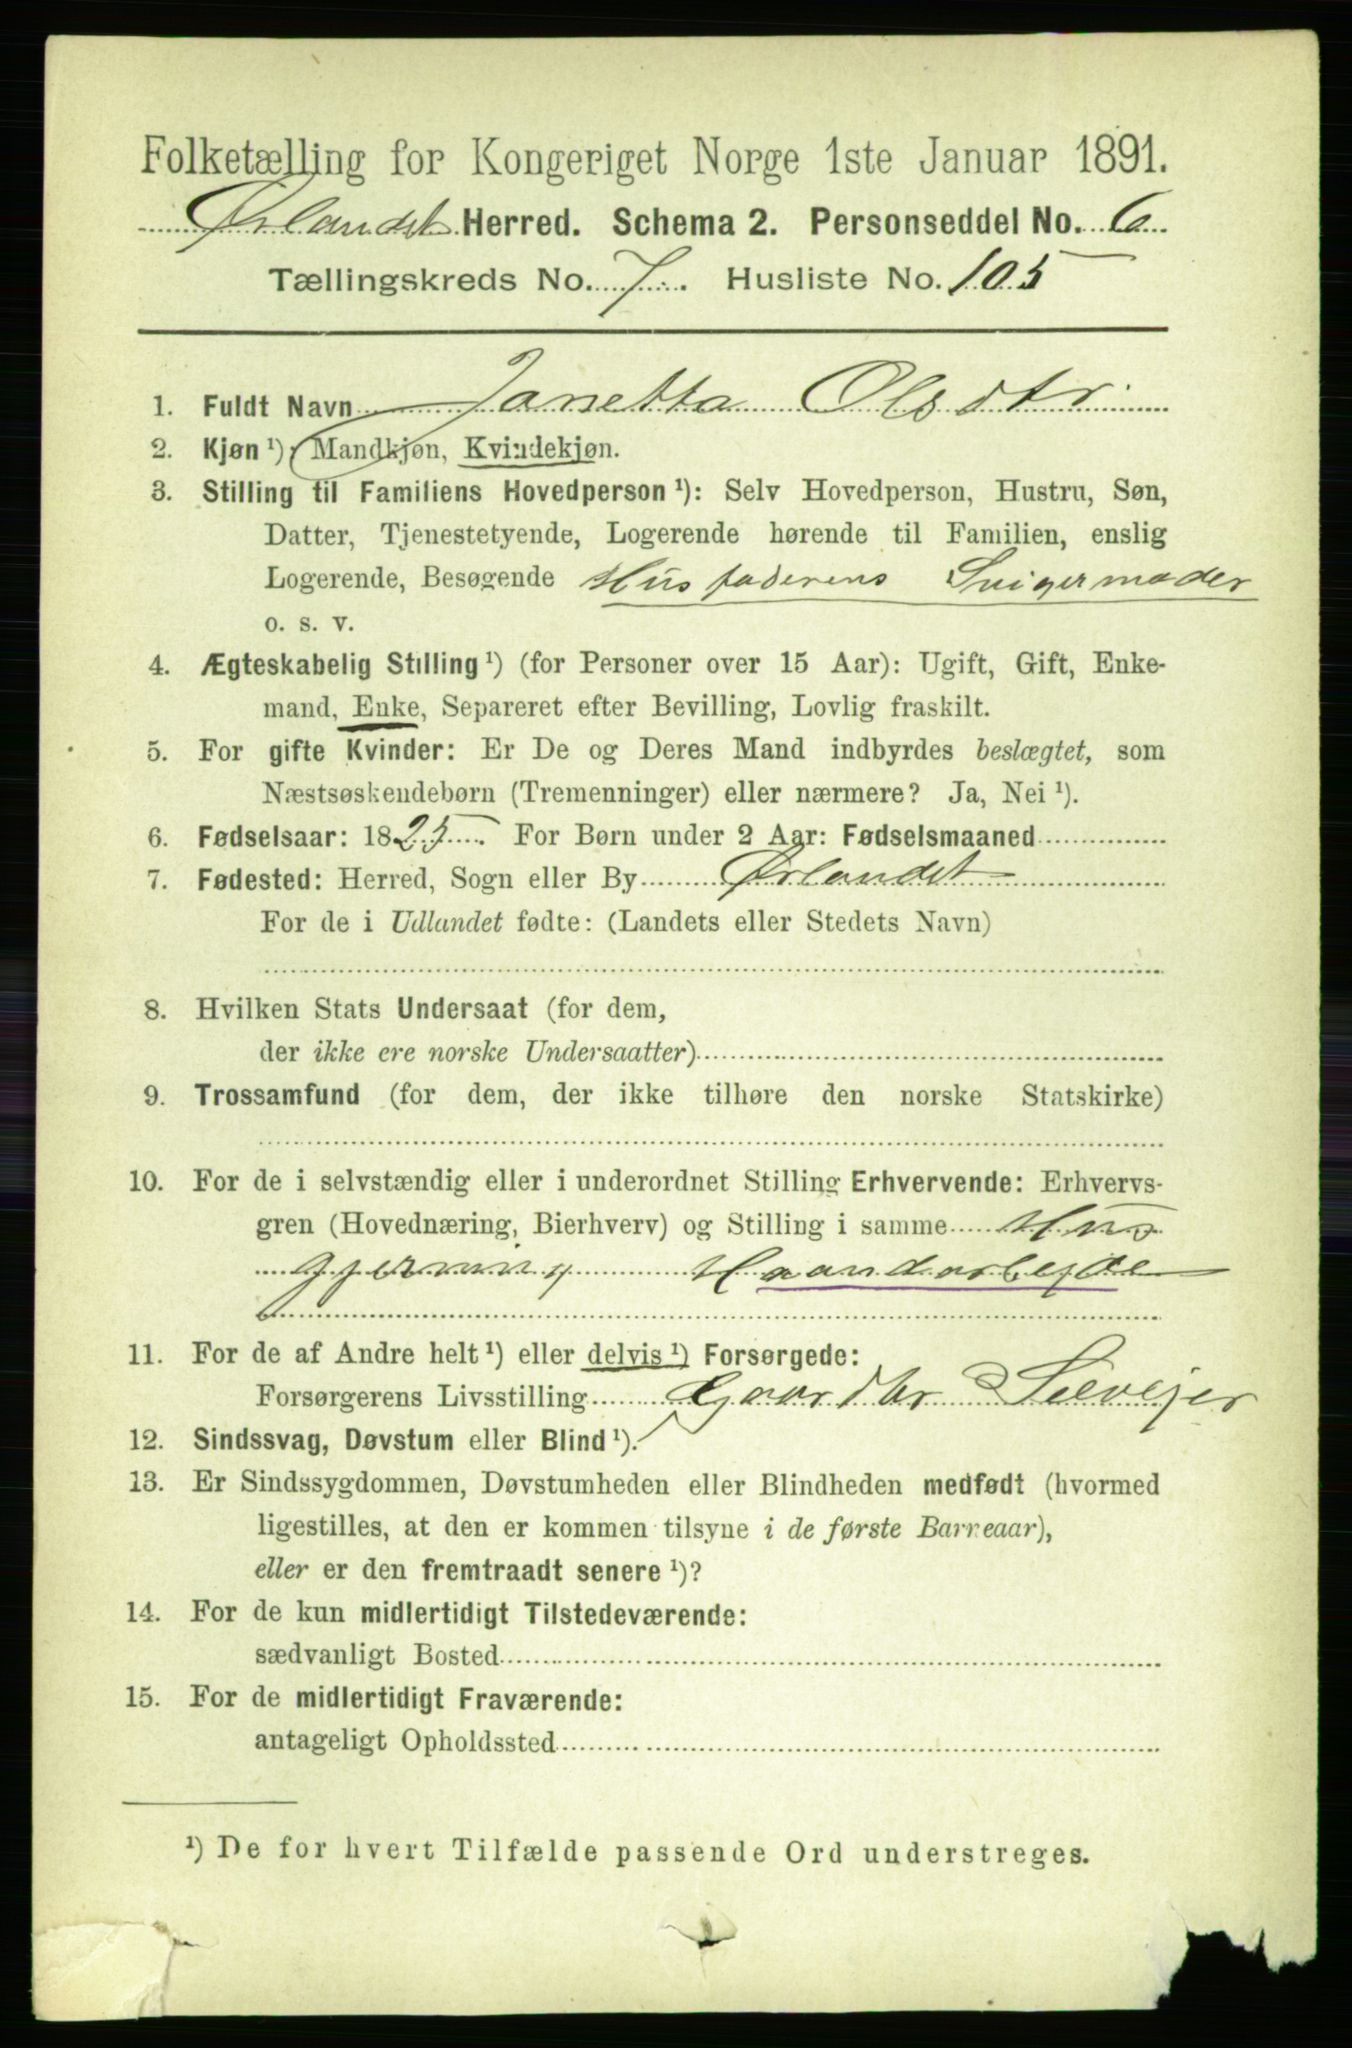 Folketælling for Kongeriget Norge 1ste Januar 1891.
Ørlandet Herred. Schema 2. Personseddel No. 6
Tællingskreds No. 7. Husliste No. 105
1. Fuldt Navn Janetta Olsdtr
2. Kjøn ¹): Mandkjøn, Kvindekjøn.
3. Stilling til Familiens Hovedperson ¹): Selv Hovedperson, Hustru, Søn,
Datter, Tjenestetyende, Logerende hørende til Familien, enslig
Logerende, Besøgende Husfaderens Svigermoder
o. s. v.
4. Ægteskabelig Stilling ¹) (for Personer over 15 Aar): Ugift, Gift, Enke-
mand, Enke, Separeret efter Bevilling, Lovlig fraskilt.
5. For gifte Kvinder: Er De og Deres Mand indbyrdes beslægtet, som
Næstsøskendebørn (Tremenninger) eller nærmere? Ja, Nei ¹).
6. Fødselsaar: 1825. For Børn under 2 Aar: Fødselsmaaned
7. Fødested: Herred, Sogn eller By Ørlandet
For de i Udlandet fødte: (Landets eller Stedets Navn)
8. Hvilken Stats Undersaat (for dem,
der ikke ere norske Undersaatter)
9. Trossamfund (for dem, der ikke tilhøre den norske Statskirke)
10. For de i selvstændig eller i underordnet Stilling Erhvervende: Erhvervs-
gren (Hovednæring, Bierhverv) og Stilling i samme Hus
gjerning Haandarbejde
11. For de af Andre helt ¹) eller delvis ¹) Forsørgede:
Forsørgerens Livsstilling Gaardbr Selvejer
12. Sindssvag, Døvstum eller Blind ¹).
13. Er Sindssygdommen, Døvstumheden eller Blindheden medfødt (hvormed
ligestilles, at den er kommen tilsyne i de første Barneaar),
eller er den fremtraadt senere ¹)?
14. For de kun midlertidigt Tilstedeværende:
sædvanligt Bosted
15. For de midlertidigt Fraværende:
antageligt Opholdssted
¹) De for hvert Tilfælde passende Ord understreges.